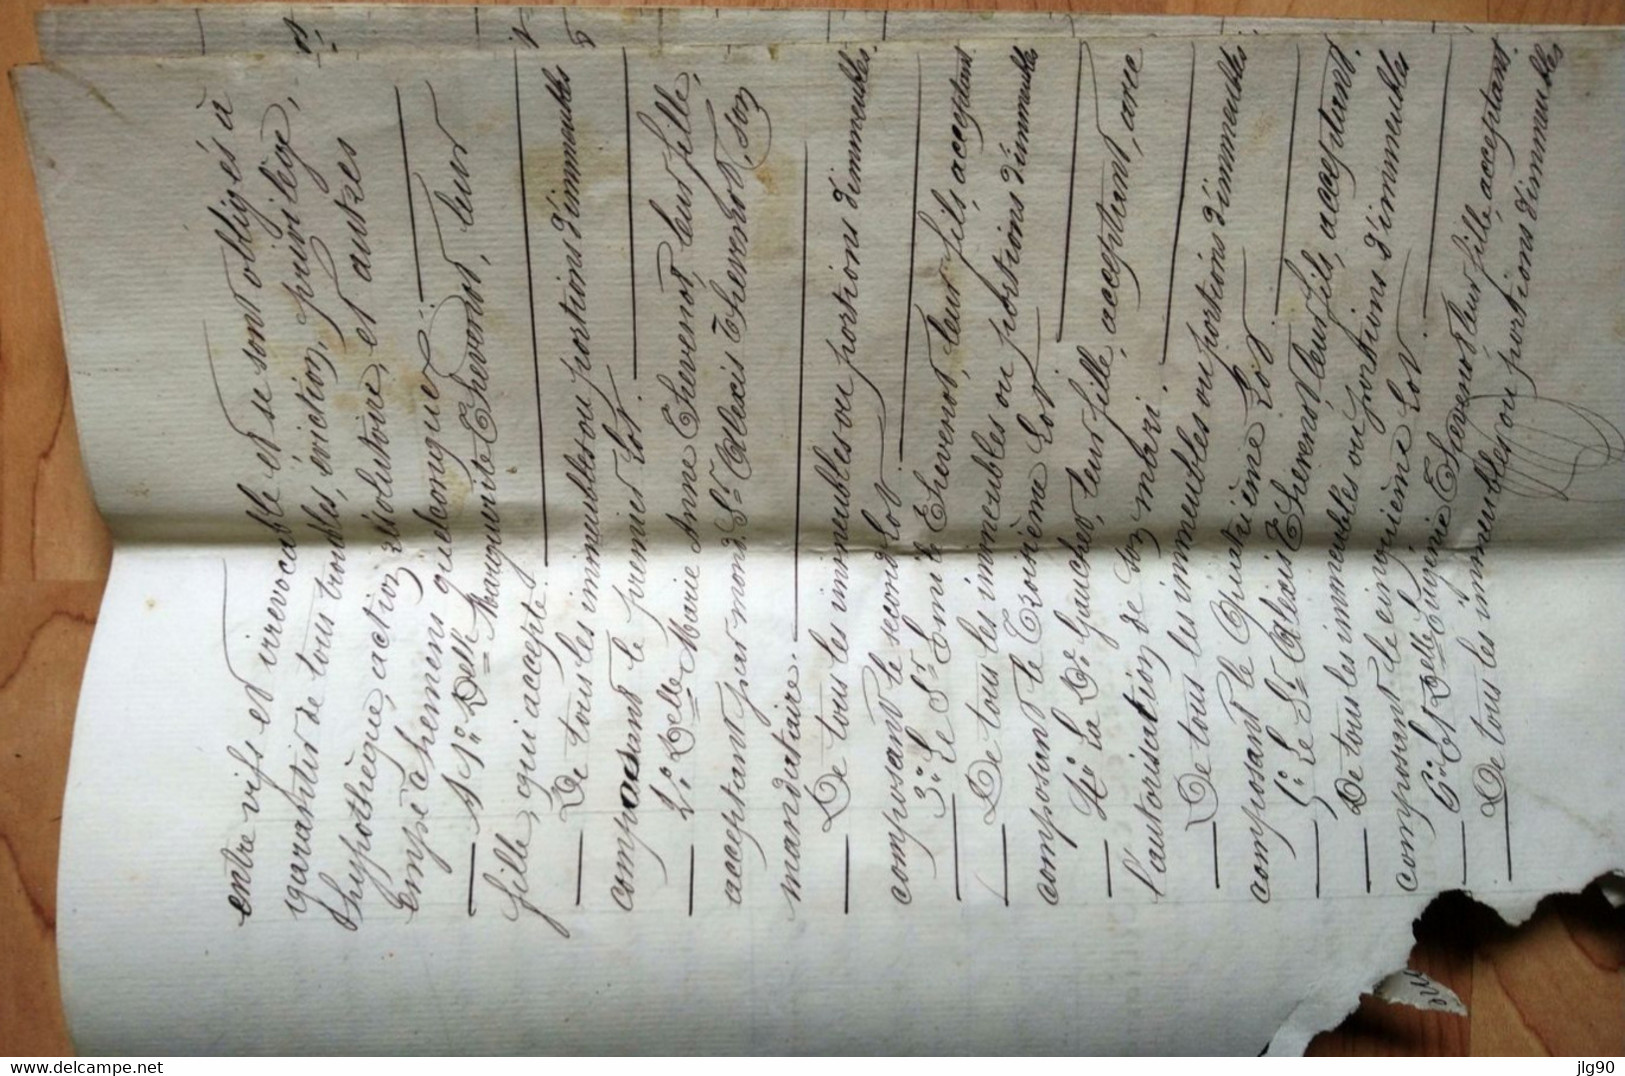 entre vifs et irrevocable et se sont obligés à
garantir de tous troubles, éviction, privilège,
hypothèque, action résolutoire, et autres
empêchemens quelconques:
1º. Delle Marguerite Thevenot, leur
fille, qui accepte.
De tous les immeubles ou portions d'immeubles
composant le premier Lot.
2º. Delle Marie Anne Thevenot, leur fille,
acceptant par mond. Sr. Alexis Thevenot, son
mandataire.
De tous les immeubles ou portions d'immeubles
composant le second Lot.
3º. Le Sr. Thevenot, leur fils, acceptant
De tous les immeubles ou portions d'immeubles
composant le Troisième Lot.
4º. La De. Gaucher, leur fille, acceptant, avec
l'autorisation de son mari.
De tous les immeubles ou portions d'immeubles
composant le Quatrième Lot.
5º. Le Sr. Alexis Thevenot, leur fils, acceptant.
De tous les immeubles ou portions d'immeubles
composant le cinquième Lot.
6º. Et Delle Eugénie Thevenot leur fille, acceptant.
De tous les immeubles ou portions d'immeubles
Delcampe.net
jlg90